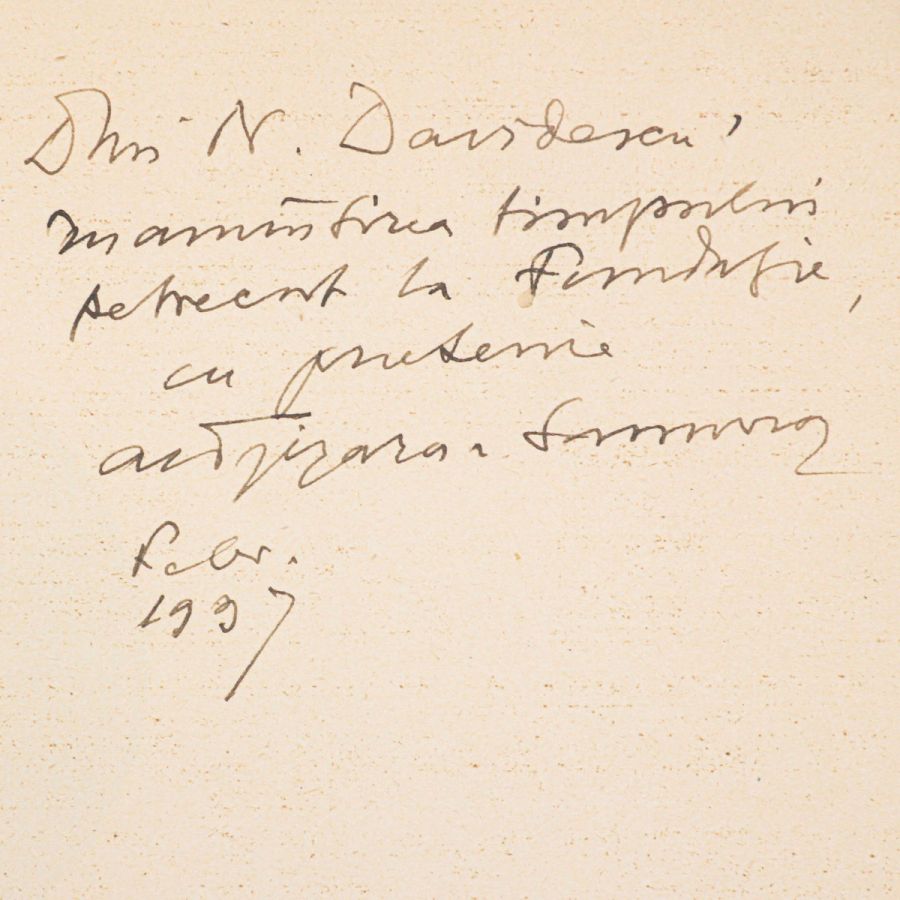 Dlui N. Davidescu,
în amintirea timpului
petrecut la Fundație,
cu prietenie
Febr.
1997